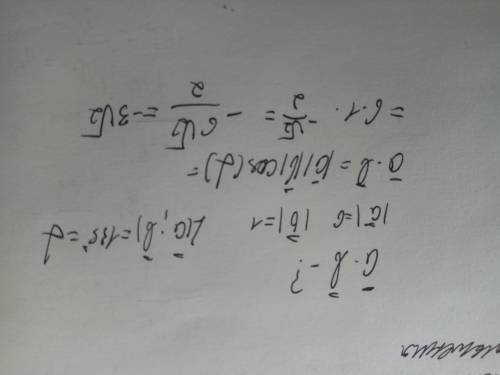 ā · b̄ - ?
|ā| = 6 |b̄| = 1 ∠(ā; b̄) = 135° = α
ā · b̄ = |ā| |b̄| cos(α) =
= 6 · 1 · -√2/2 = - 6√2/2 = -3√2